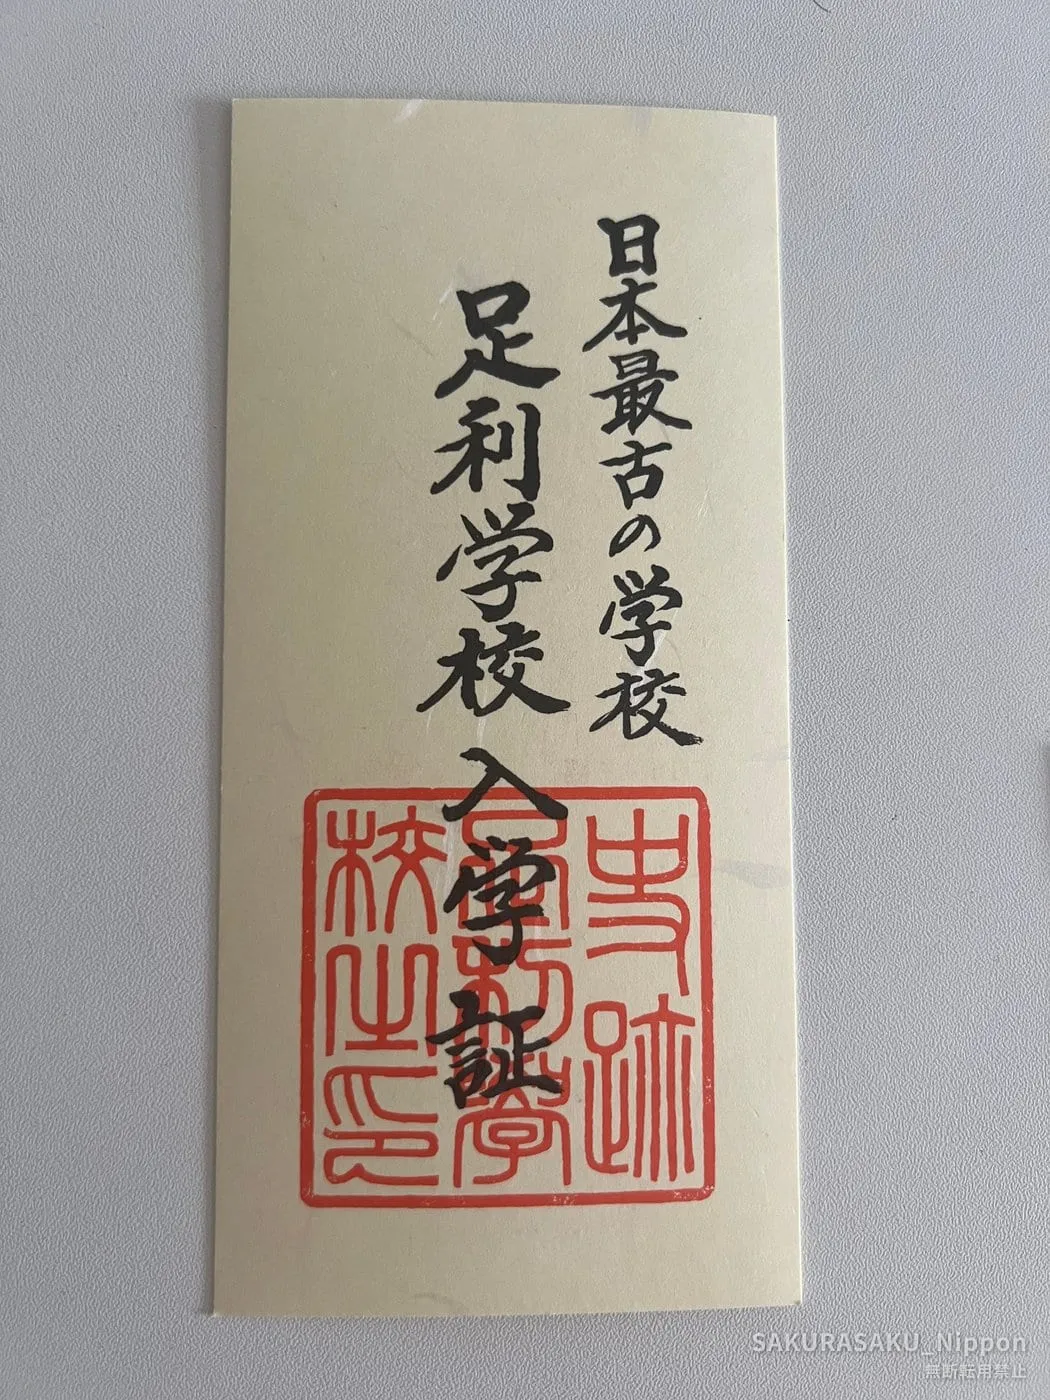 日本最古の学校
足利学校 入学証
史跡
足利学
校之印
SAKURASAKU_Nippon
無断転用禁止